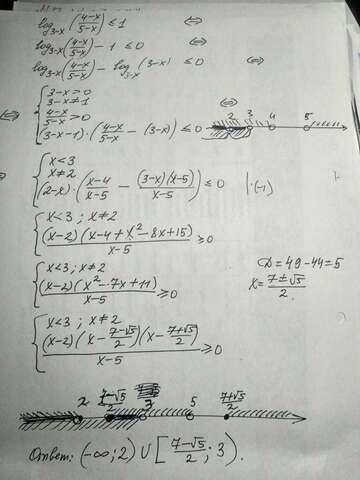 log₃₋ₓ((4-x)/(5-x)) ≤ 1 ⇔
log₃₋ₓ((4-x)/(5-x)) - 1 ≤ 0 ⇔
log₃₋ₓ((4-x)/(5-x)) - log₃₋ₓ(3-x) ≤ 0 ⇔
3-x>0
3-x≠1 ⇔
(4-x)/(5-x)>0
⇔ (3-x-1)·((4-x)/(5-x) - (3-x)) ≤ 0
2 3 4 5
x<3
x≠2
(2-x)·((x-4)/(x-5) - (3-x)(x-5)/(x-5)) ≤ 0 |·(-1)
x<3; x≠2
(x-2)(x-4+x²-8x+15)/(x-5) ≥ 0
x<3; x≠2
(x-2)(x²-7x+11)/(x-5) ≥ 0
D=49-44=5
x=(7±√5)/2
x<3; x≠2
(x-2)(x-(7-√5)/2)(x-(7+√5)/2)/(x-5) ≥ 0
2 (7-√5)/2 3 5 (7+√5)/2
Ответ: (-∞; 2) ∪ [(7-√5)/2; 3).